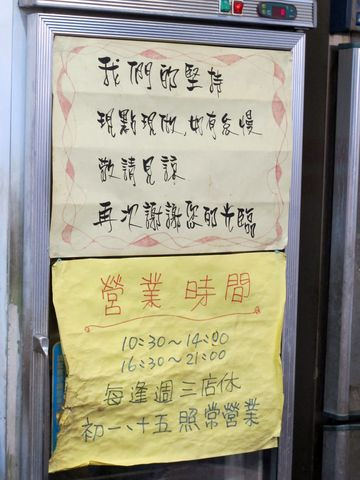 我們的堅持
現點現做,如有怠慢
敬請見諒
再次謝謝您的光臨
營業時間
10:30~14:00
16:30~21:00
每逢週三店休
初一、十五照常營業